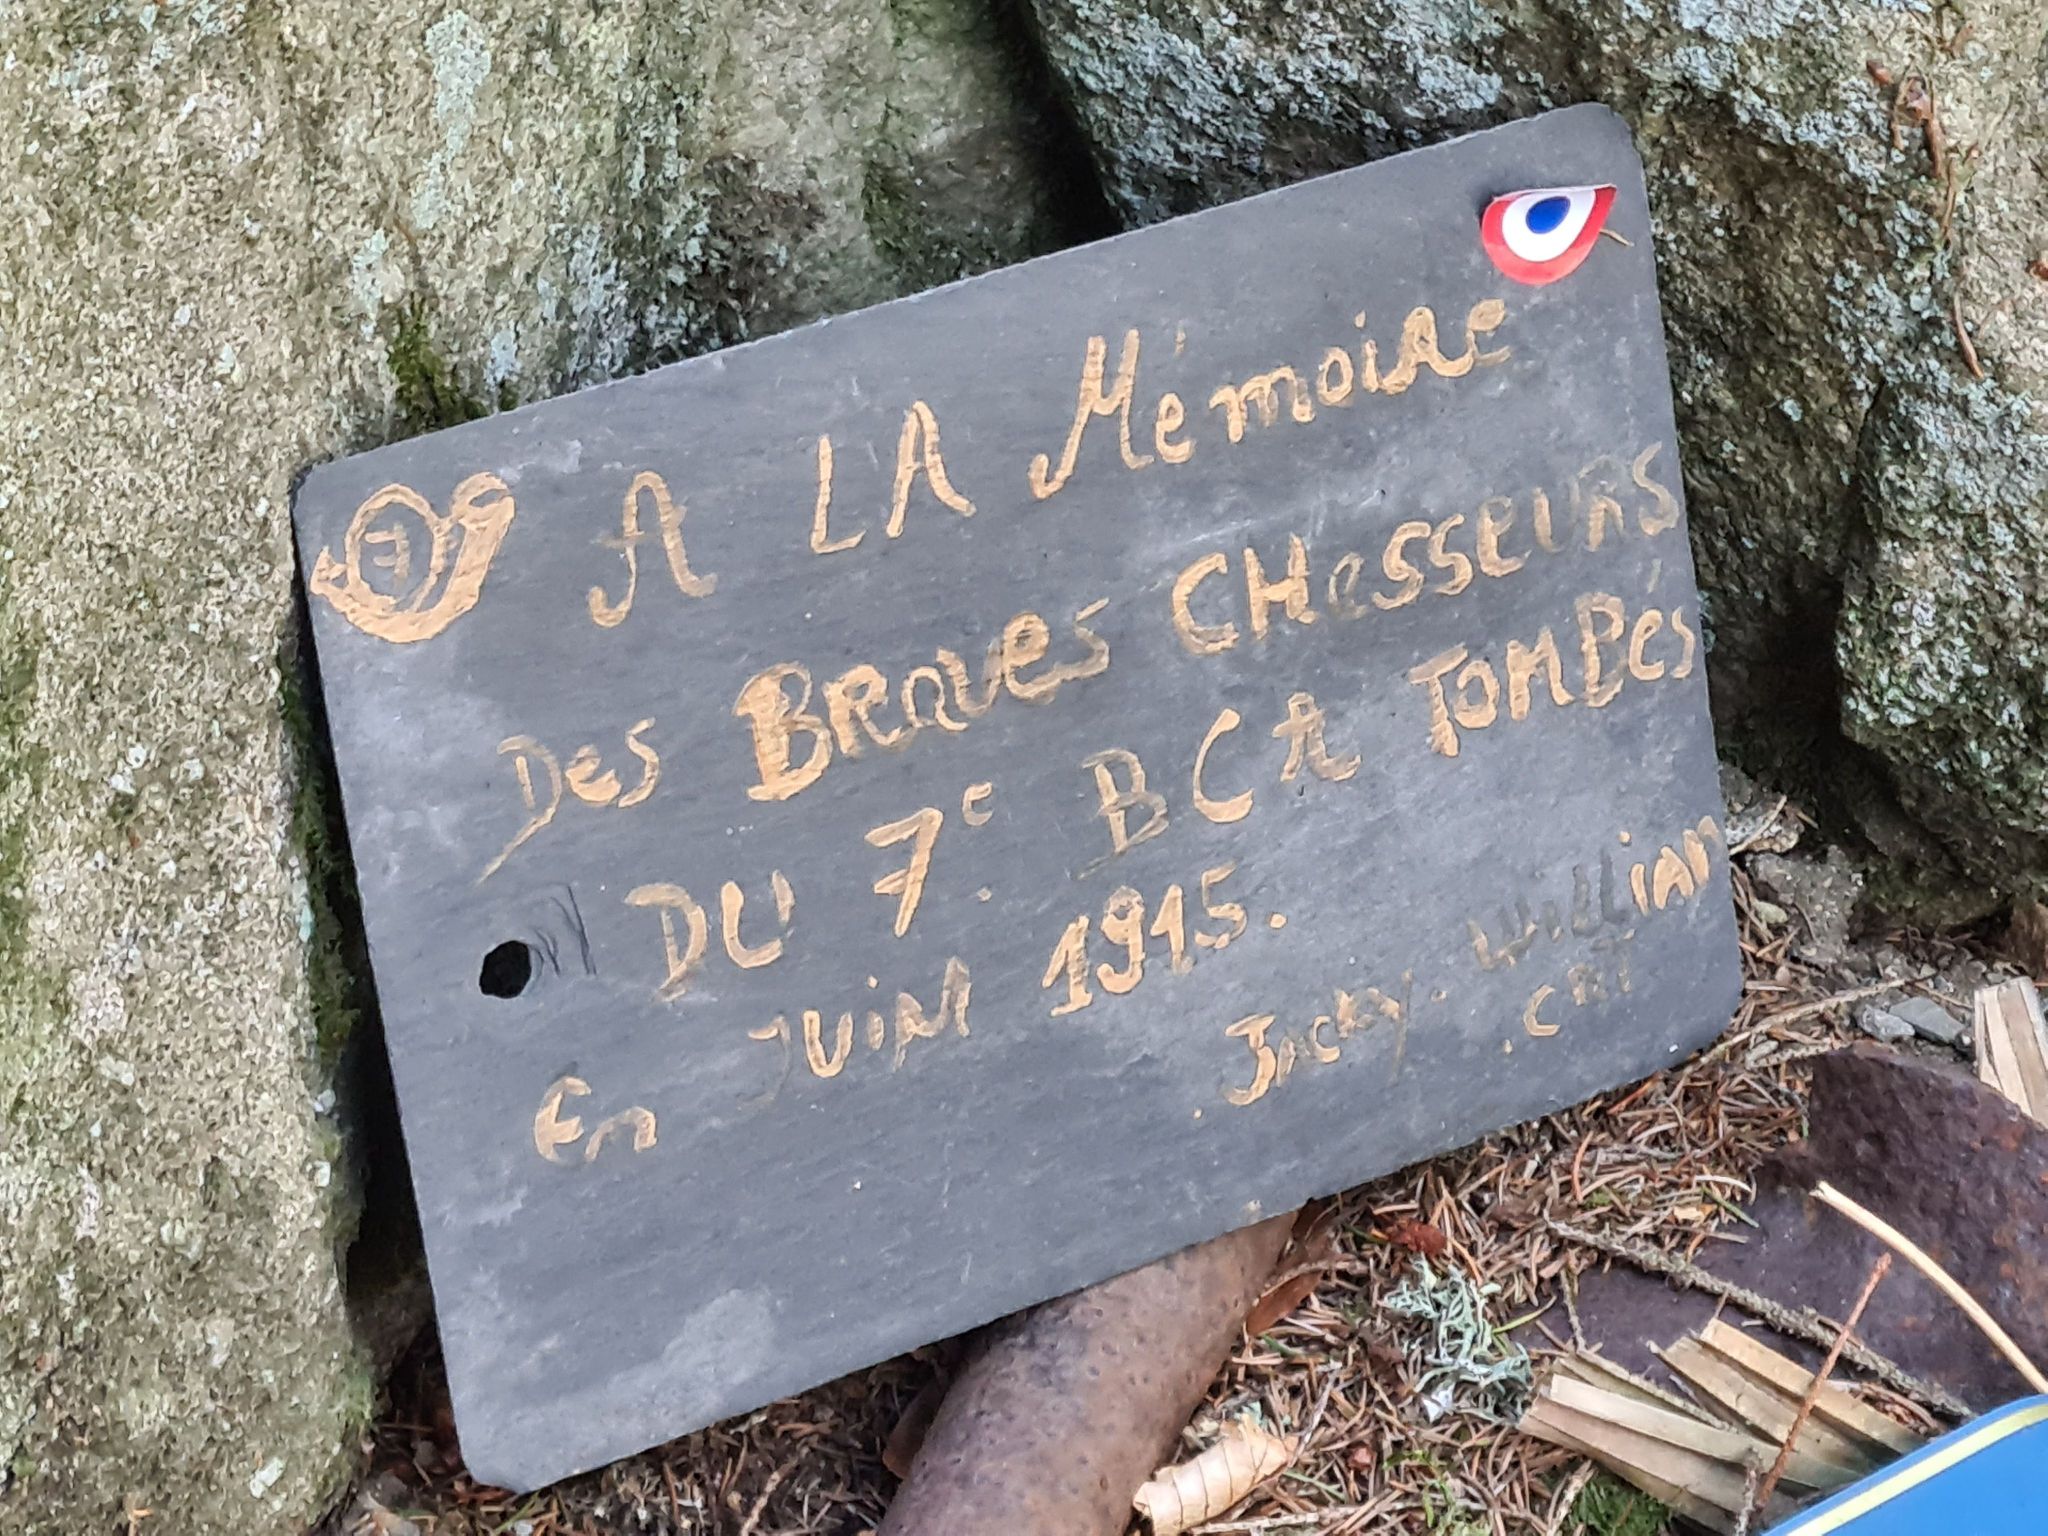 7
A LA Mémoire
Des BRAVES CHASSEURS
DU 7e BCA TOMBÉS
En JUIN 1915.
JACKY. William
. CRT